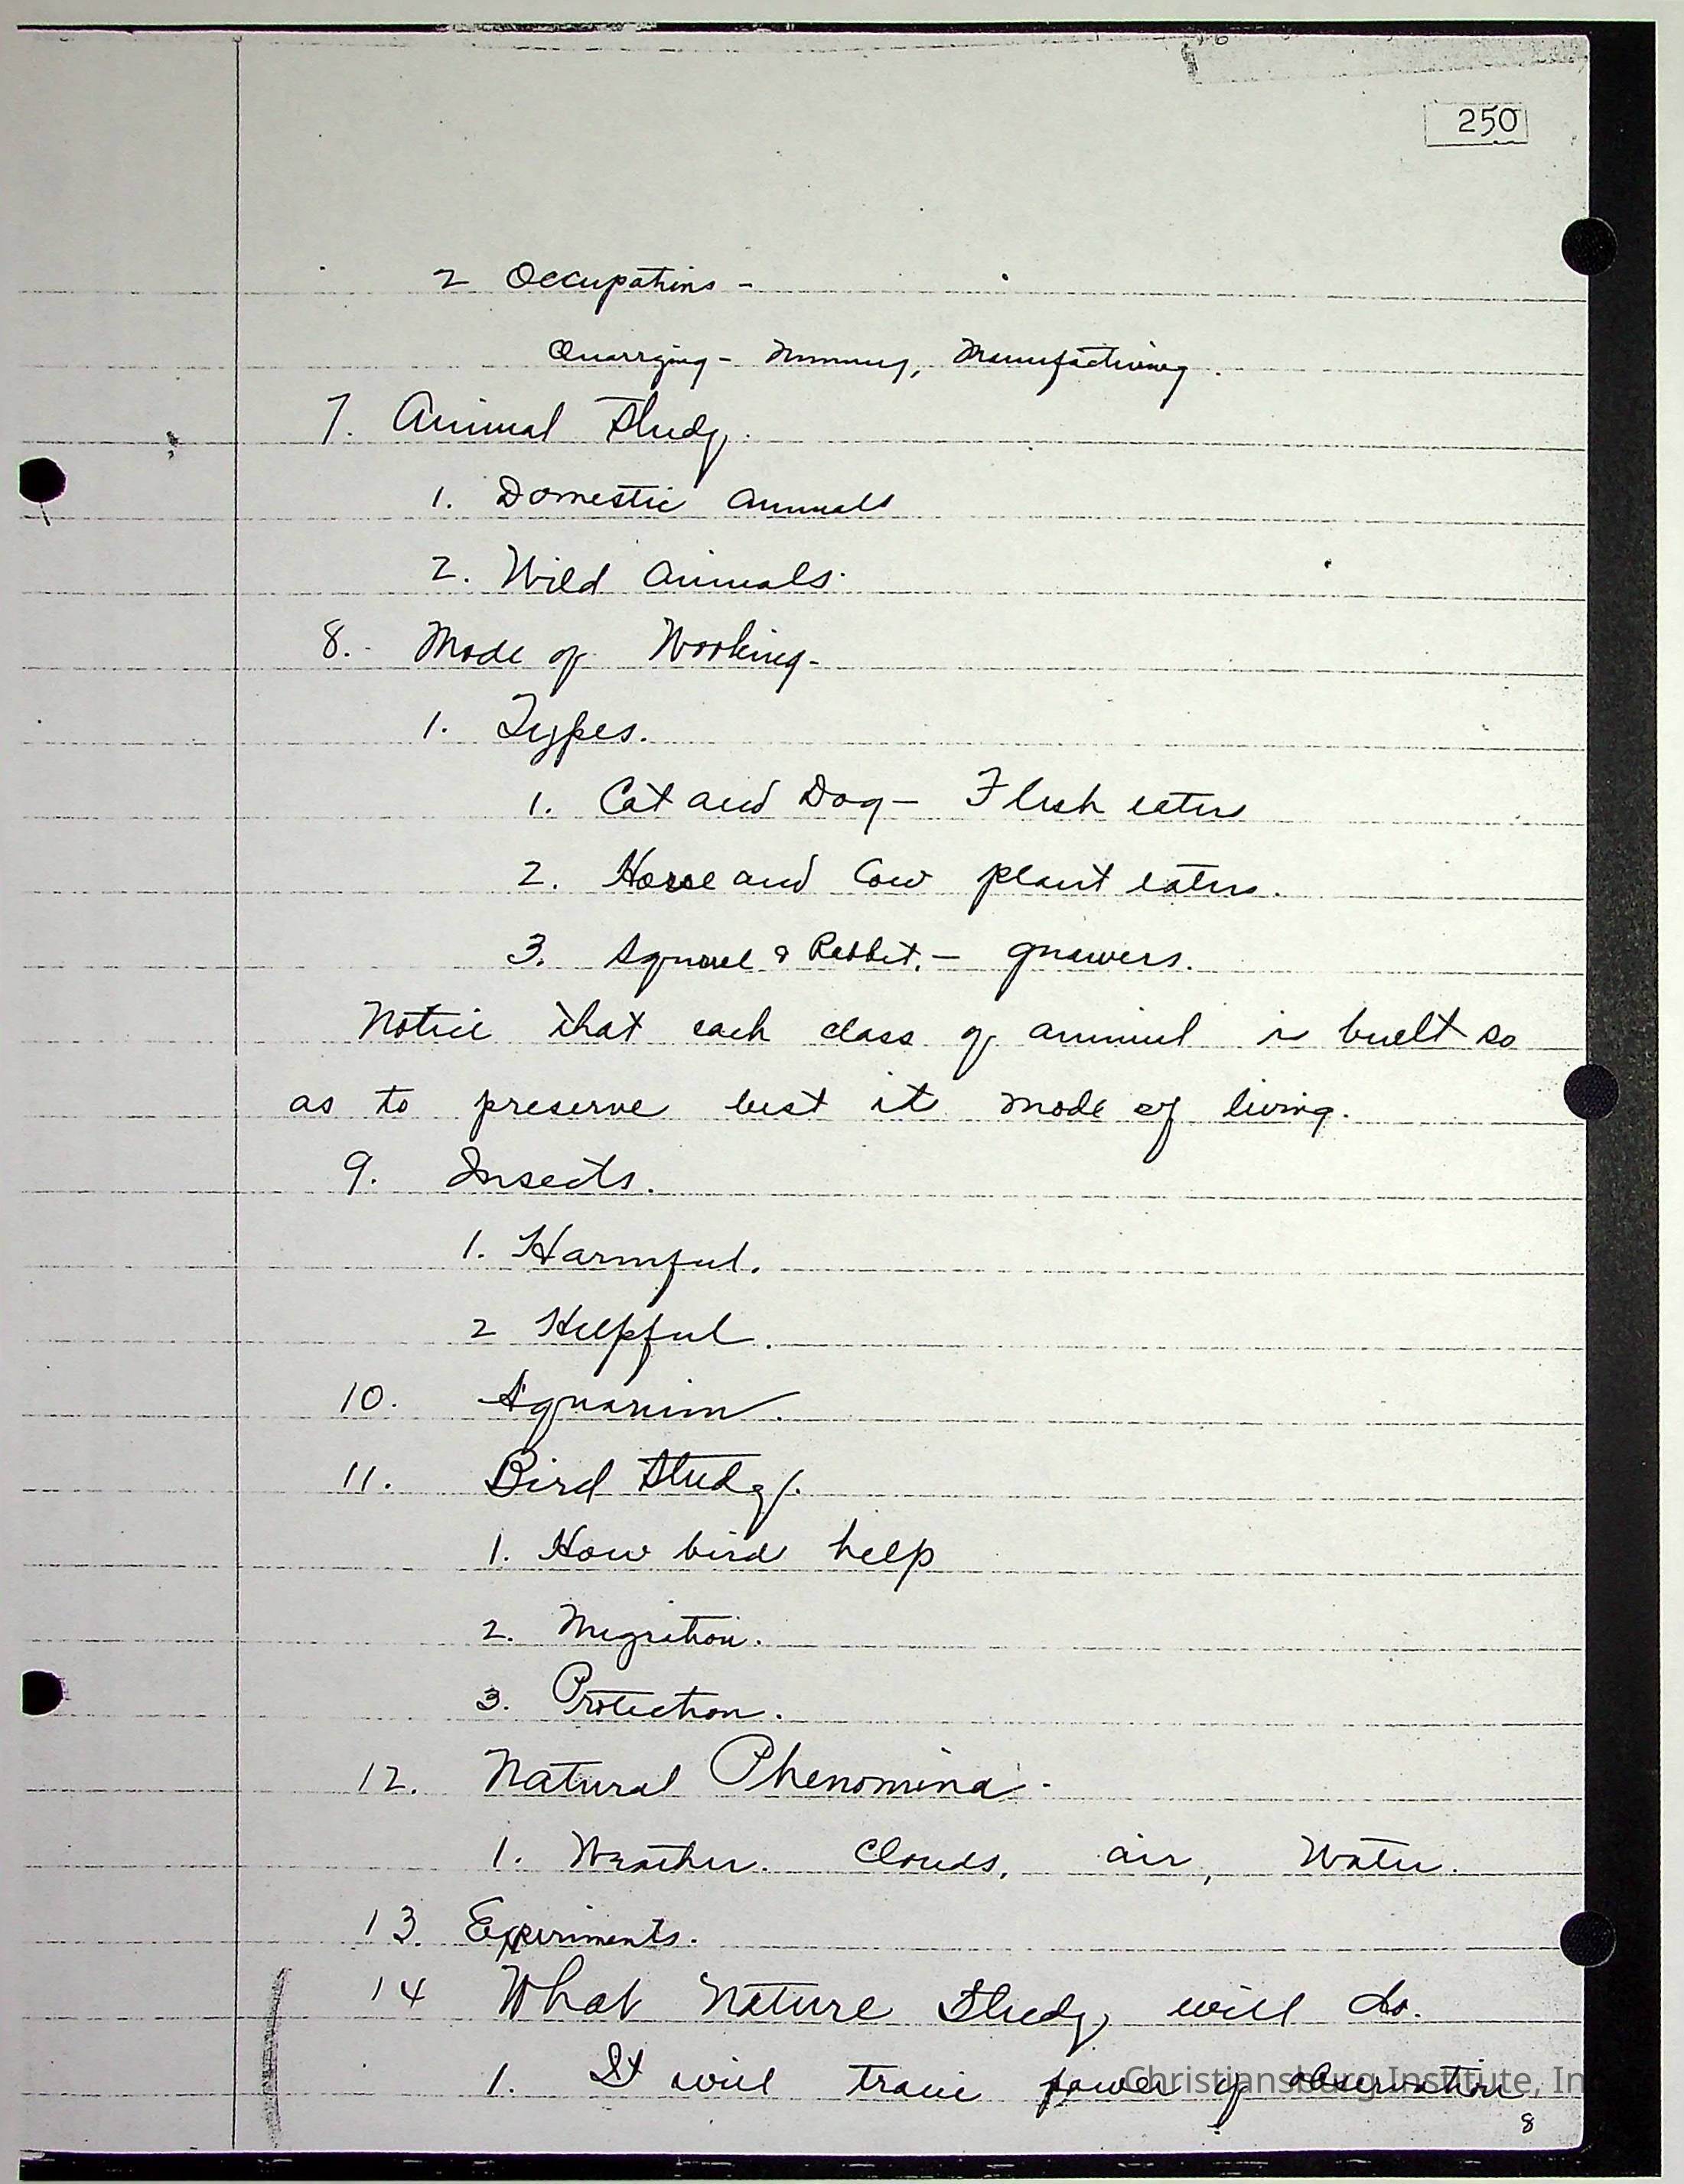 250
2 Occupations -
Quarrying - Mining, Manufacturing.
7. Animal Study.
1. Domestic animals
2. Wild animals.
8. - Mode of Working -
1. Types.
1. Cat and Dog - Flesh eaters
2. Horse and Cow plant eaters.
3. Squirrel & Rabbit. - gnawers.
Notice that each class of animal is built so
as to preserve best its mode of living.
9. Insects.
1. Harmful.
2 Helpful.
10. Aquarium.
11. Bird Study.
1. How birds help
2. Migration.
3. Protection.
12. Natural Phenomina -
1. Weather. Clouds, air, Water.
13. Experiments.
14 What Nature Study will do.
1. It will train power of observation
Christiansburg Institute, In
8